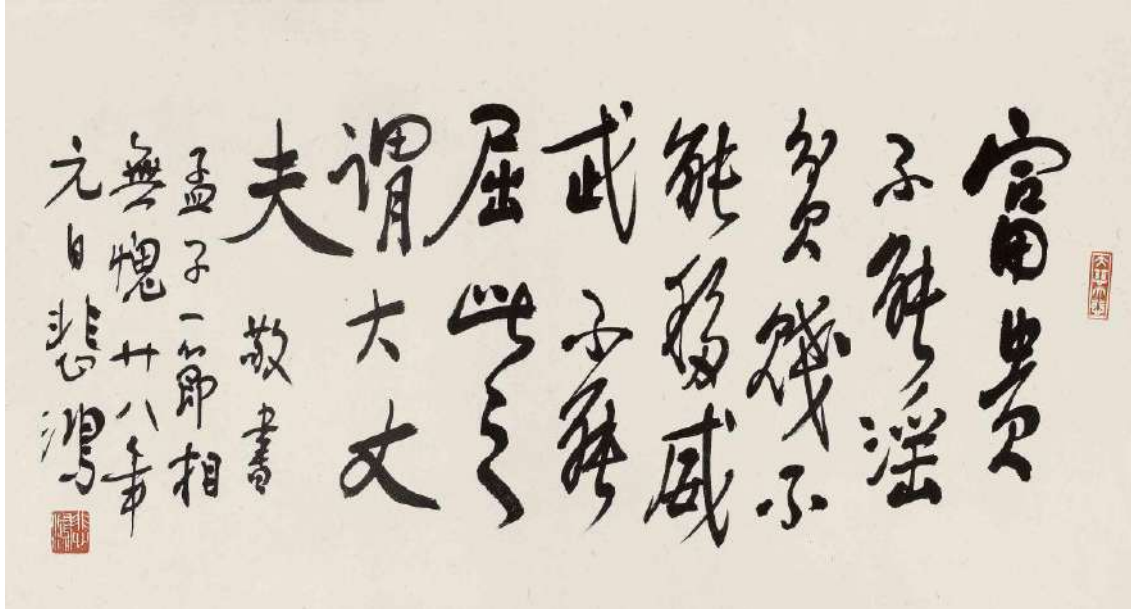 富貴
不能淫
貧賤不
能移威
武不能
屈此之
謂大丈
夫 敬書
孟子一節相
無愧廿八年
元日悲鴻